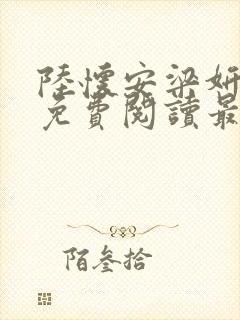 陸懷安梁妍
免費閱讀最
陌叁拾